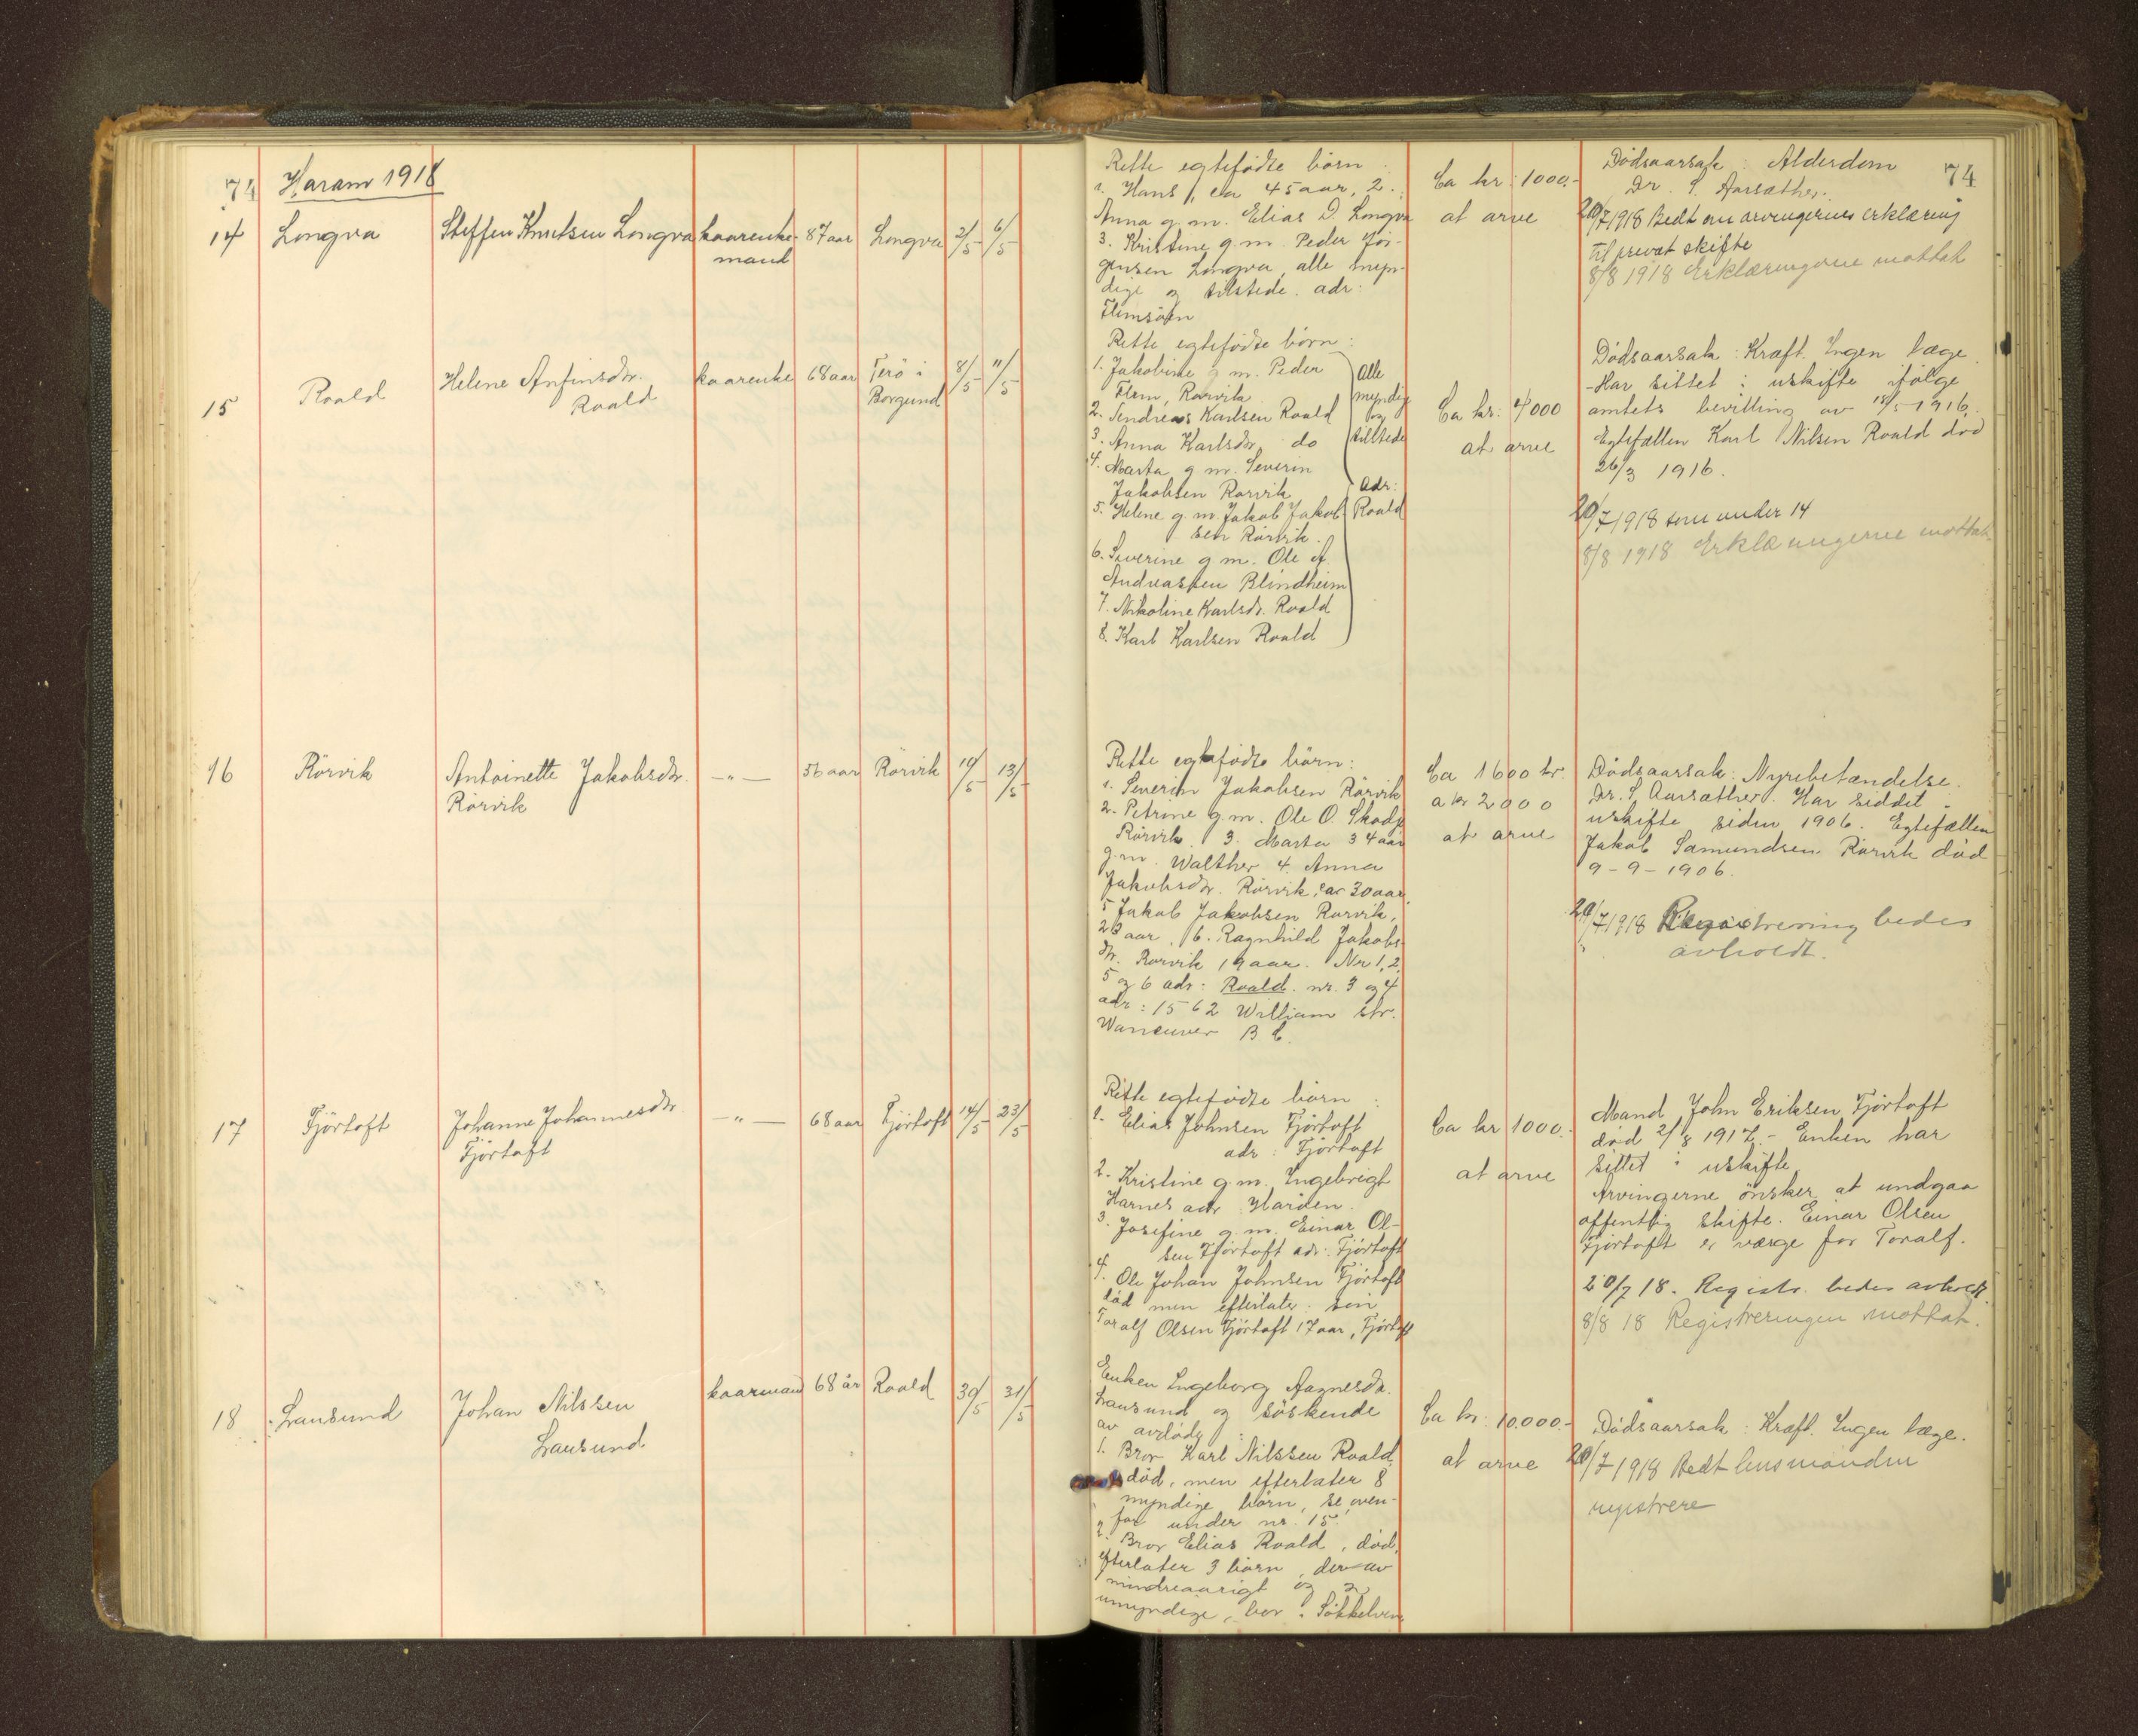 74 Haram 1918
14 Longva Steffen Knutsen Longva kaarenke- 87 aar Longva 2/5 6/5
mand
15 Roald Helene Anfinsdtr. kaarenke 68 aar Terö i 8/5 11/5
Roald Borgund
16 Rörvik Antoinette Jakobsdtr. —"— 56 aar Rörvik 10/5 13/5
Rörvik
17 Fjörtoft Johanne Johannesdtr. —"— 68 aar Fjörtoft 14/5 23/5
Fjörtoft
18 Lausund Johan Nilssen kaarmand 68 år Roald 30/5 31/5
Lausund
Rette egtefödte börn
1. Hans, ca 45 aar, 2.
Anna g.m. Elias D. Longva
3. Kristine g.m. Peder Jör-
gensen Longva, alle myn-
dige og tilstede. adr:
Flemsöen
Ca kr: 1000.-
at arve
Dödsaarsak: Alderdom 74
Dr. S. Aarsæther.
20/7 1918 Bedt om arvingernes erklæring
til privat skifte
8/8 1918 Erklæringerne mottat
Rette egtefödte börn:
1. Jakobine g.m. Peder
Flem, Rörvik
2. Andreas Karlsen Roald
3. Anna Karlsdtr. do
4. Marta g.m. Severin
Jakobsen Rörvik
5. Helene g.m. Jakob Jakob-
sen Rörvik.
6. Severine g.m. Ole A
Andreassen Blindheim
7. Nikoline Karlsdtr. Roald
8. Karl Karlsen Roald
Alle
myndig
og
tilstede
Adr:
Roald
Ca kr: 4000
at arve
Dödsaarsak: Kræft. Ingen læge.
Har sittet i uskifte ifölge
amtets bevilling av 18/5 1916.
Egtefællen Karl Nilsen Roald död
26/3 1916.
20/7 1918 som under 14
8/8 1918 Erklæringerne mottat
Rette egtefödte börn:
1. Severin Jakobsen Rörvik
2. Petrine g.m. Ole O. Skodje
Rörvik. 3. Marta 34 aar
g.m. Walther 4. Anna
Jakobsdtr. Rörvik, ca 30 aar,
5 Jakob Jakobsen Rörvik,
23 aar, 6. Ragnhild Jakobs-
dtr. Rörvik 19 aar. Nr 1, 2,
5 og 6 adr: Roald. nr. 3 og 4
adr: 1562 William str.
Wancuver B C.
Ca 1600 kr.
a kr 2000
at arve
Dödsaarsak: Nyrebetændelse.
Dr. S. Aarsæther. Har siddet i
uskifte siden 1906. Egtefællen
Jakob Samundsen Rörvik död
9-9-1906.
20/7 1918 Registrering bedes
avholdt.
Rette egtefödte börn:
1. Elias Johnsen Fjörtoft
adr: Fjörtoft
2. Kristine g.m. Ingebrigt
Harnes adr: Haröen.
3. Josefine g.m. Einar Ol-
sen Fjörtoft adr: Fjörtoft
4. Ole Johan Johnsen Fjörtoft
död men efterlater: sön
Toralf Olsen Fjörtoft 17 aar, Fjörtoft
Ca kr 1000.-
at arve
Mand John Eriksen Fjörtoft
död 2/8 1917.- Enken har
sittet i uskifte
Arvingerne önsker at undgaa
offentlig skifte. Einar Olsen
Fjörtoft er værge for Toralf.
20/7 18. Registr. bedes avholdt.
8/8 18 Registreringen mottat.
Enken Ingeborg Aagnesdtr.
Lausund og söskende
av avdöde:
1. Bror Karl Nilssen Roald,
död, men efterlater 8
myndige börn, se oven-
for under nr. 15.
2. Bror Elias Roald, död,
efterlater 3 börn, derav
mindreaarigt og 2
umyndige, bor i Sökkelven
Ca kr: 10.000.-
at arve
Dödsaarsak: Kræft. Ingen læge.
20/7 1918 Bedt lensmanden
registrere